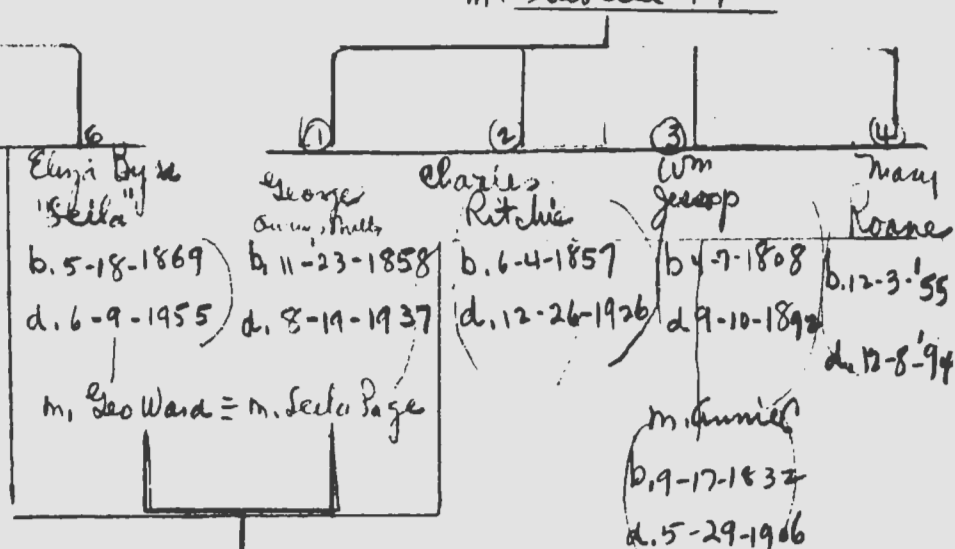 m.
6
"Seila"
b. 5-18-1869
d. 6-9-1955
m, Geo Ward = m. Seila Page
1
George
b, 11-23-1858
d. 8-19-1937
2
Charles
Ritchie
b. 6-4-1857
d. 12-26-1926
3
Wm
Jessop
b 4-7-1808
d 9-10-189
m. Annie
b, 9-17-1832
d. 5-29-1906
4
Mary
Roane
b. 12-3-'55
d. 12-8-'94